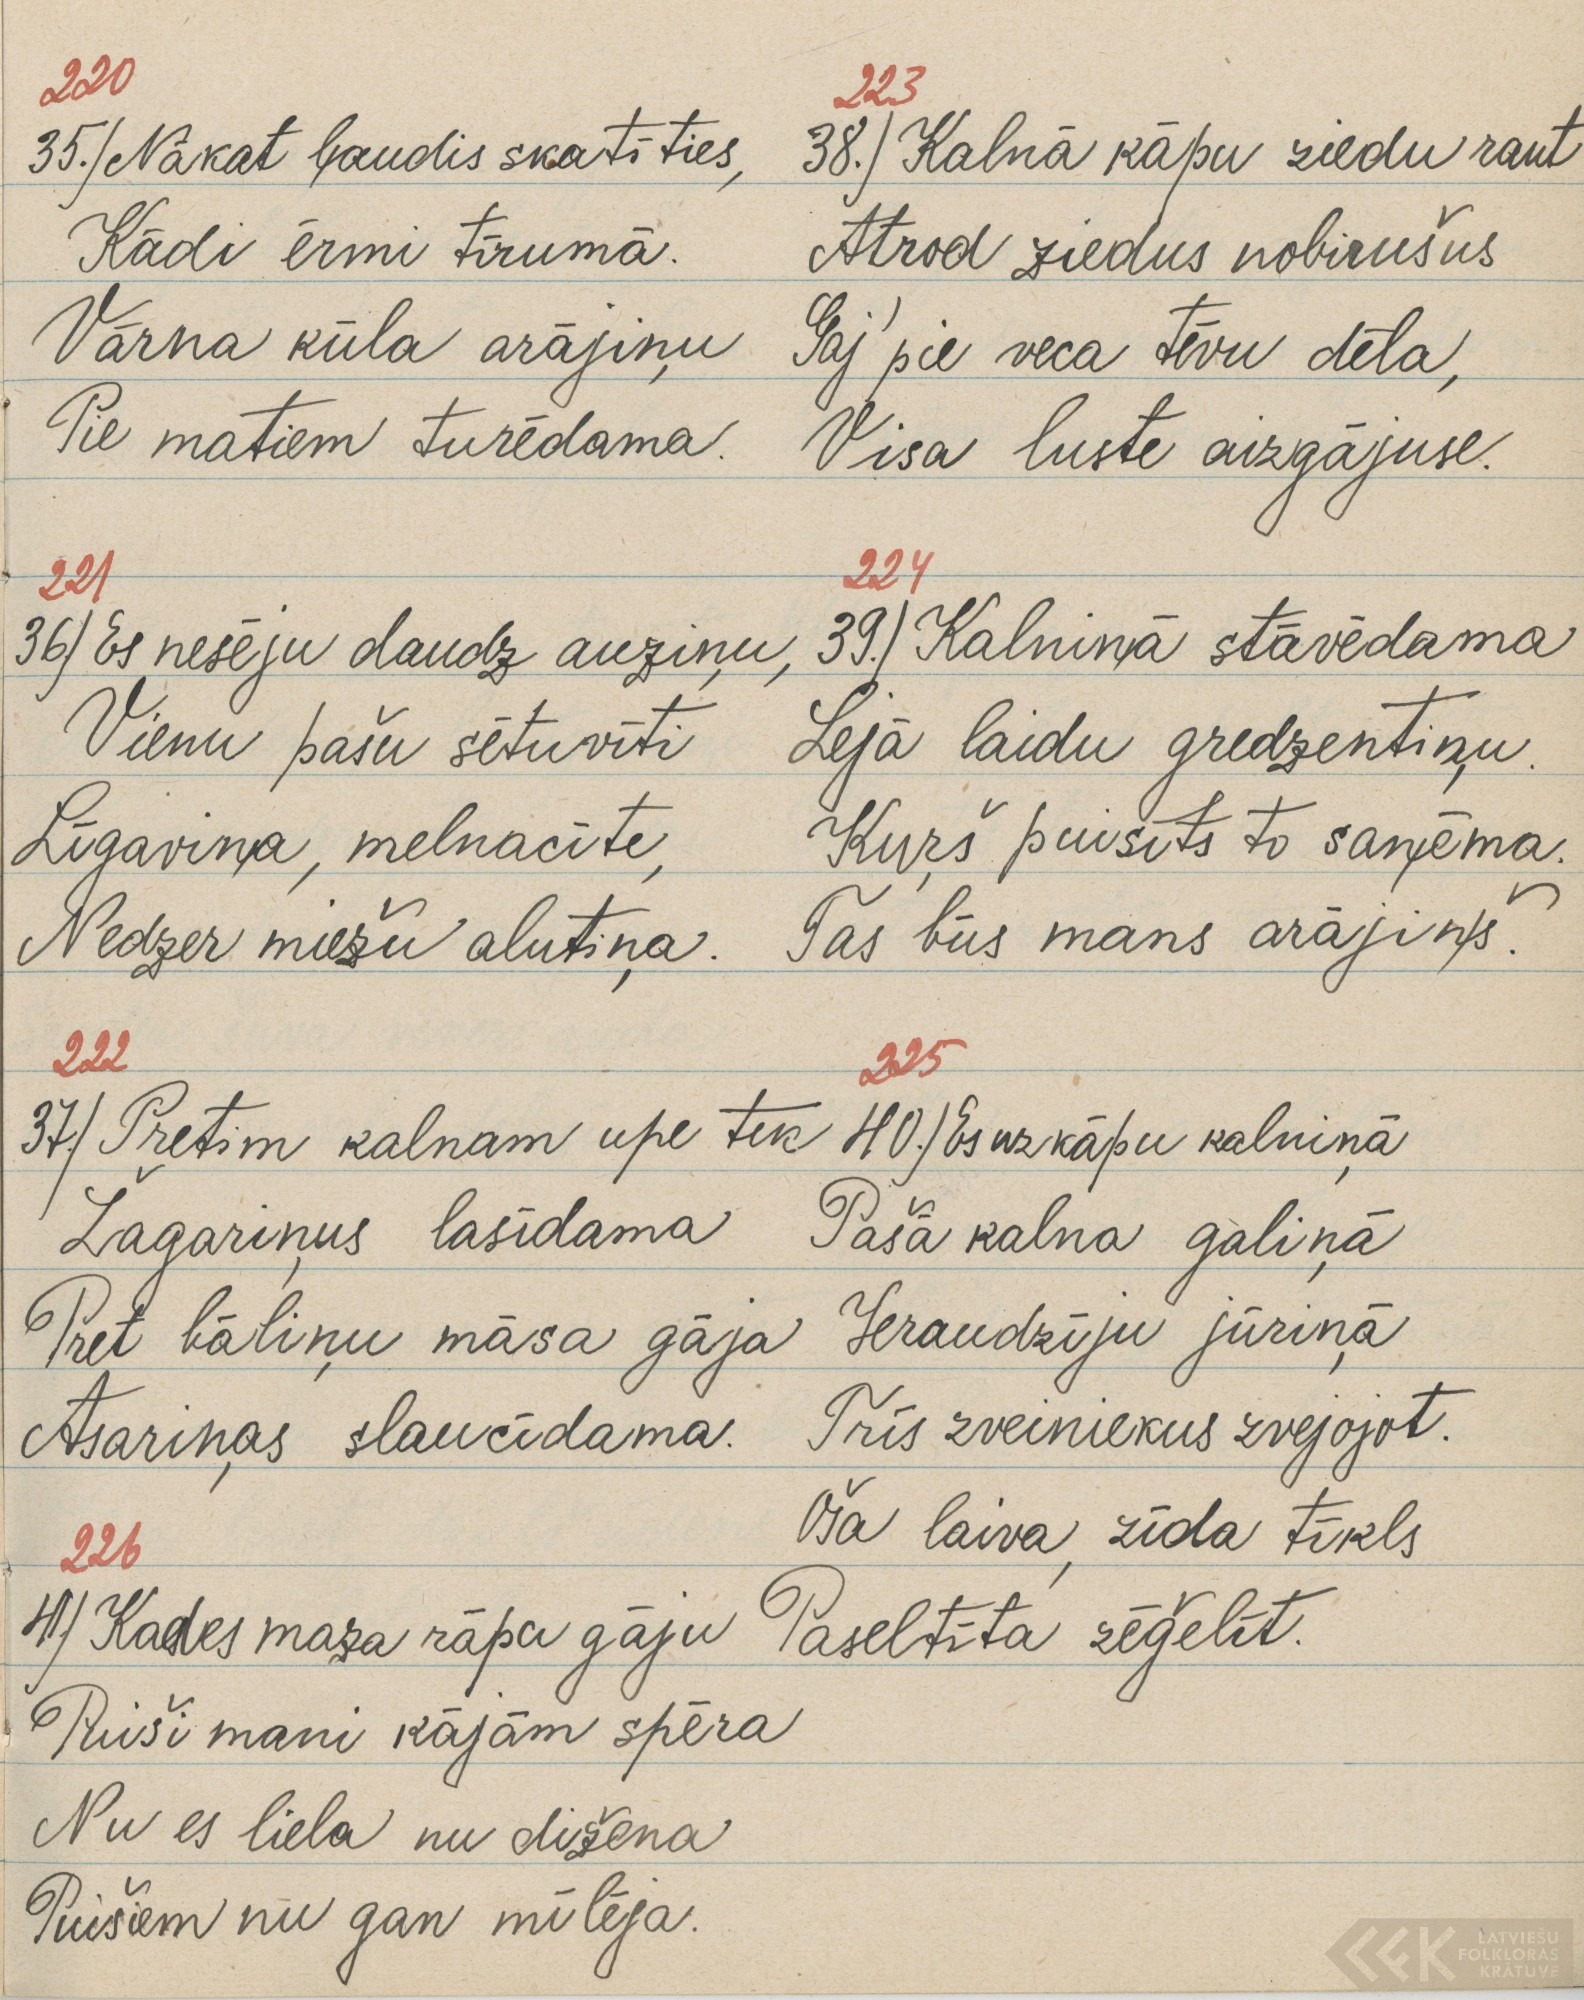 220
35.) Nākat ļaudis skatīties,
Kādi ērmi tīrumā.
Vārna kūla arājiņu
Pie matiem turēdama.
221
36) Es nesēju daudz auziņu,
Vienu pašu sētuvīti
Līgaviņa, melnacīte,
Nedzer miežu alutiņa.
222
37.) Pretim kalnam upe tek
Žagariņus lasīdama
Pret bāliņu māsa gāja
Asariņas slaucīdama.
226
41) Kad es maza rāpu gāju
Puiši mani kājām spēra
Nu es liela nu dižena
Puišiem nu gan mīlēja.
223
38.) Kalnā kāpu ziedu raut
Atrod ziedus nobirušus
Gāj' pie veca tēvu dēla,
Visa luste aizgājuse.
224
39.) Kalniņā stāvēdama
Lejā laidu gredzentiņu.
Kuŗš puisīts to saņēma.
Tas būs mans arājiņš.
225
40.) Es uzkāpu kalniņā
Pašā kalna galiņā
Ieraudzīju jūriņā
Trīs zveiniekus zvejojot.
Oša laiva, zīda tīkls
Paseltīta zēģelīt.
LATVIEŠU
FOLKLORAS
KRĀTUVE